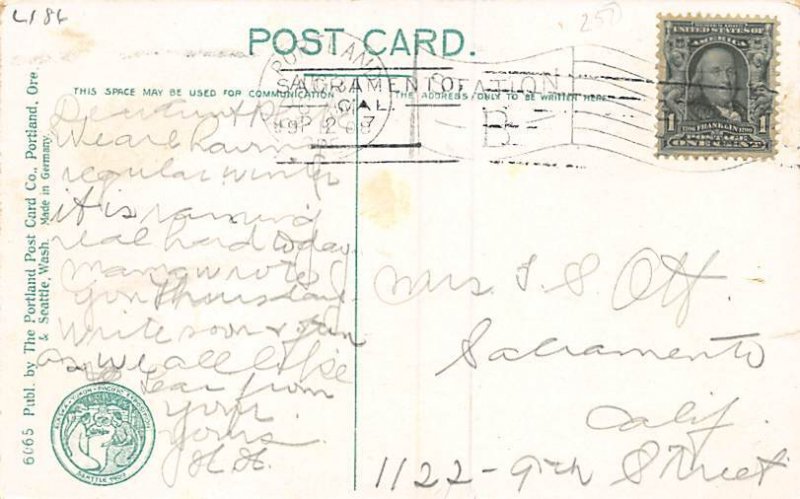 L186
257
POST CARD.
THIS SPACE MAY BE USED FOR COMMUNICATION
THE ADDRESS ONLY TO BE WRITTEN HERE
SACRAMENTO
CAL.
UNITED STATES OF
AMERICA
1 FRANKLIN 1
ONE CENT
Dear Aunt
We are having
regular winter
it is raining
real hard today
mama wrote
you Thursday
write soon &
as we all like
to hear from
you.
Yours
H. H.
Mrs. T. S. Ott.
Sacramento
Calif.
1122 - 9th Street
6065 Publ. by The Portland Post Card Co., Portland, Ore.
& Seattle, Wash. Made in Germany.
ALASKA-YUKON-PACIFIC EXPOSITION
SEATTLE 1909